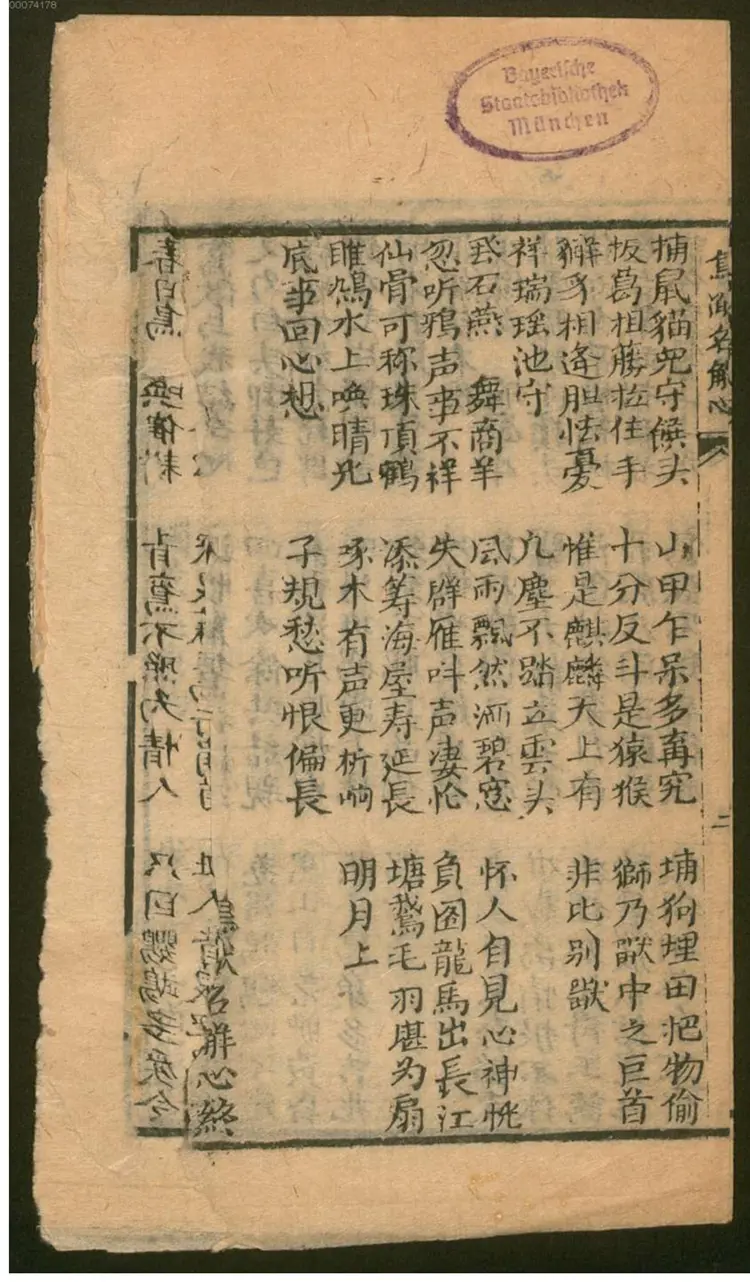 00074178
Bayerische
Staatsbibliothek
München
名解心
二
捕鼠貓兒守候头 山甲乍呆多再究 埔狗埋田把物偷
扳葛相藤拉住手 十分反斗是猿猴 獅乃獸中之巨首
獬豸相逢胆怯憂 惟是麒麟天上有 非比别獸
祥瑞瑶池守 九塵不踏立雲头
飛石燕 舞商羊 風雨飄然洒碧窓 怀人自見心神恍
忽听鴉声事不祥 失群雁呌声凄怆 負图龍馬出長江
仙骨可称珠頂鶴 添筹海屋寿延長 塘鵞毛羽堪为扇
睢鸠水上唤晴光 琢木有声更柝响 明月上
底事回心想 子規愁听恨偏長
名解心終